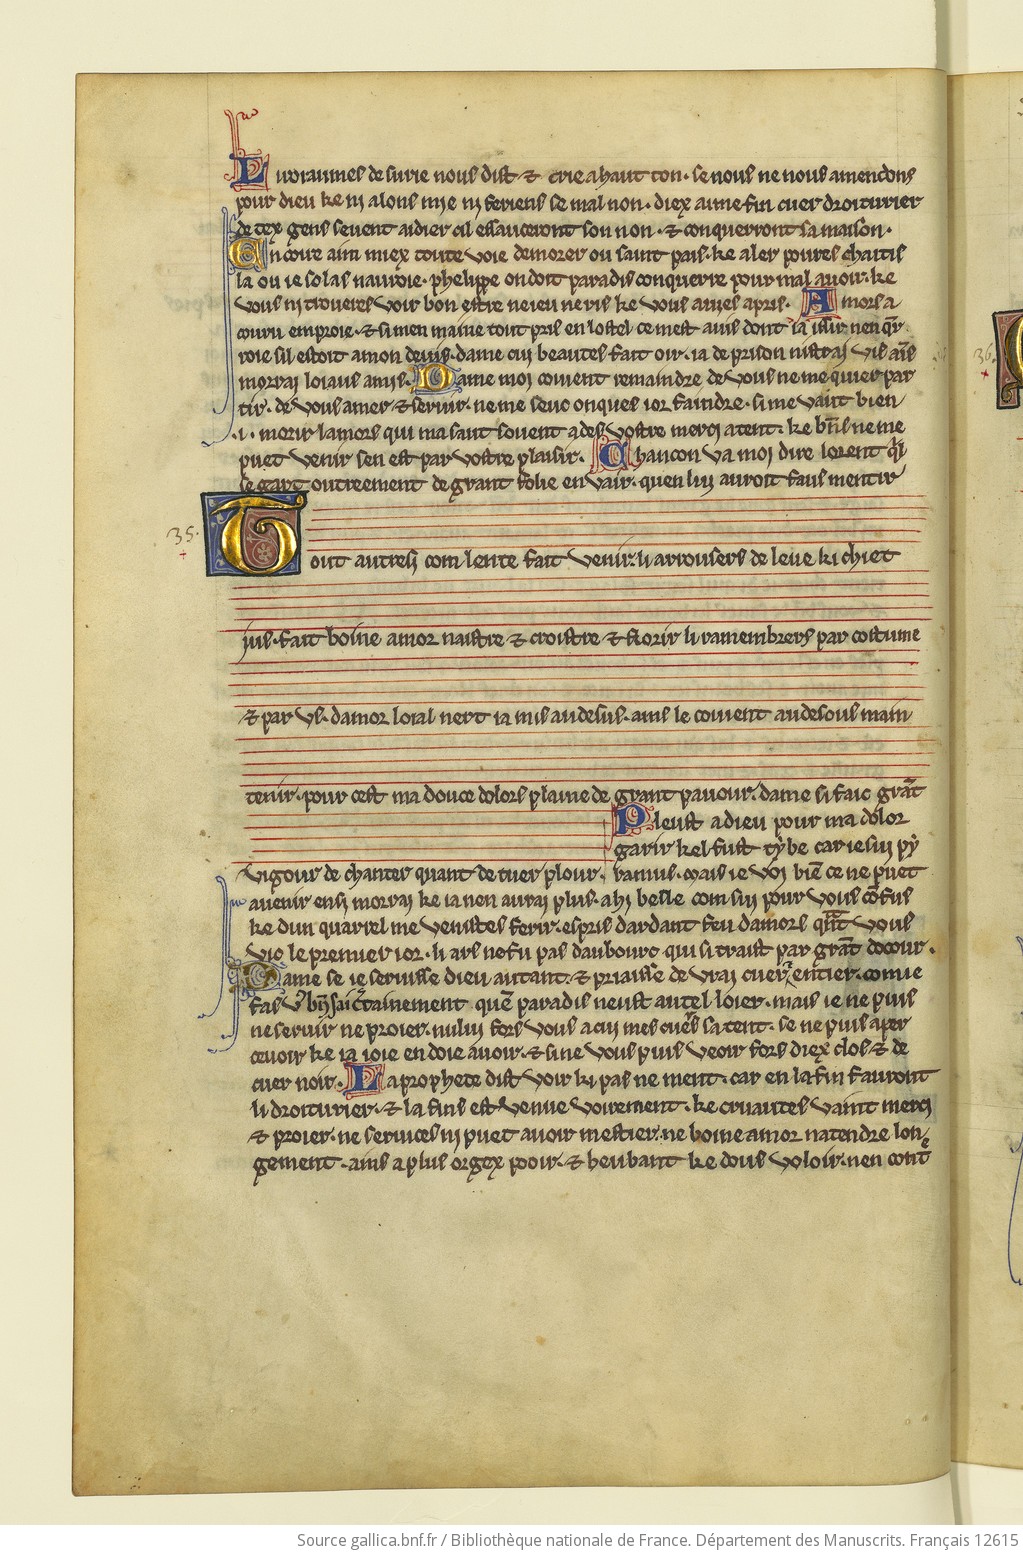 Li roiaumes de surie nous dist & crie a haut ton · se nous ne nous amendons
pour dieu ke ni alons mie ni feriens se mal non · diex aime fin cuer droiturier
de tex gens seuent aidier cil essauceront son non · & conquerront sa maison ·
Encore aim miex toute uoie demorer ou saint pais · ke aler poures chaitis
la ou ie solas nauroie · phelippe on doit paradis conquerre pour mal auoir · ke
vous ni troueres voir bon estre ne ieu ne ris ke vous auies apris · Amors a
couru en proie · & si men maine tout pris en lostel ce mest auis dont ia issir nen qͥr
roie sil estoit a mon deuis · dame cui beautes fait oir · ia de prison nistrai vis ains̄
morrai loiaus amis · Dame moi couient remaindre de vous ne me quier par
tir · de vous amer & seruir · ne me seuc onques ior faindre · si me vaut bien
·i· morir lamors qui masaut souent ades vostre merci atent · ke bn̄s ne me
puet venir sen est par vostre plaisir · Chancon va moi dire lorent qͥl
se gart outreement de grant folie en vair · quen lui auroit faus mentir
35·
Tout autresi com lente fait venir · li arrousers de leue ki chiet
ius · fait boine amor naistre & croistre & florir li ramembrers par costume
& par us · damor loial nert ia mis au desus · ains le couient au desous main
tenir · pour cest ma douce dolors plaine de grant paour · dame si faic grāt
Pleust a dieu pour ma dolor
garir kel fust tybe car ie sui py
vigour de chanter quant de cuer plour · ramus · mais ie voi biē ce ne puet
auenir ensi morrai ke ia nen aurai plus · ahi belle com sui pour vous cōfus
ke dun quarrel me venistes ferir · espris dardant feu damors qn̄t vous
vic le premier ior · li ars ne fu pas daubourc qui si traist par grāt docour ·
Dame se ie seruisse dieu autant · & priaisse de vrai cuer entier · comie
fas v9 bn̄ sai c̄tainement · quē paradis neust autel loier · mais ie ne puis
ne seruir ne proier · nului fors vous a cui mes cuers satent · se ne puis aper
ceuoir ke ia ioie en doie auoir · & si ne vous puis veoir fors diex clos & de
cuer noir · La prophete dist voir ki pas ne ment · car en la fin fauront
li droiturier · & la fins est venue voirement · ke cruautes vaint merci
& proier · ne seruices ni puet auoir mestier · ne boine amor natendre lon
gement · ains a plus orgex pooir · & beubant ke dous voloir · nen cont̄
36·
Source gallica.bnf.fr / Bibliothèque nationale de France. Département des Manuscrits. Français 12615